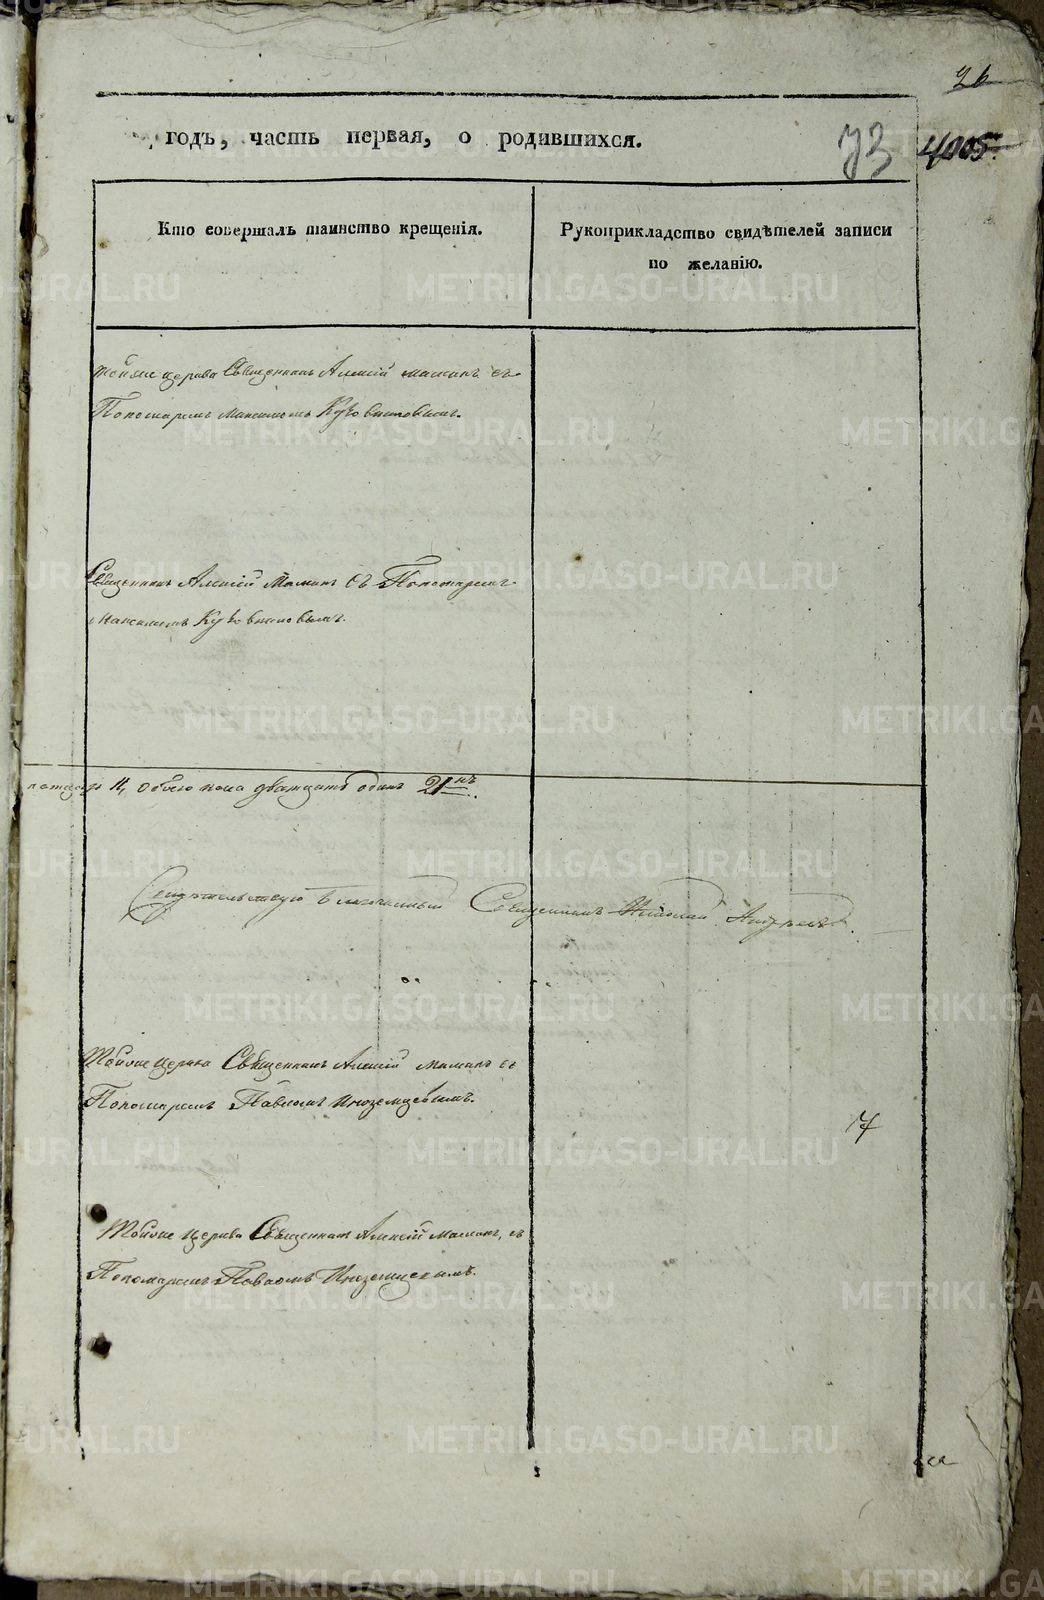 26
годъ, часть первая, о родившихся.
73
4005.
Кто совершалъ таинство крещенія.
Рукоприкладство свидѣтелей записи
по желанію.
тойже церкви Священникъ Алексій Маминъ съ
Пономаремъ Максимомъ
Священникъ Алексій Маминъ съ Пономаремъ
Максимомъ
обоего пола двадцать одинъ 21нъ.
Свидѣтельствую Благочинный Священникъ Николай
Тойже церкви Священникъ Алексій Маминъ съ
Пономаремъ Павломъ Иноземцевымъ.
Тойже церкви Священникъ Алексій Маминъ, съ
Пономаремъ Павломъ Иноземцевымъ.
METRIKI.GASO-URAL.RU